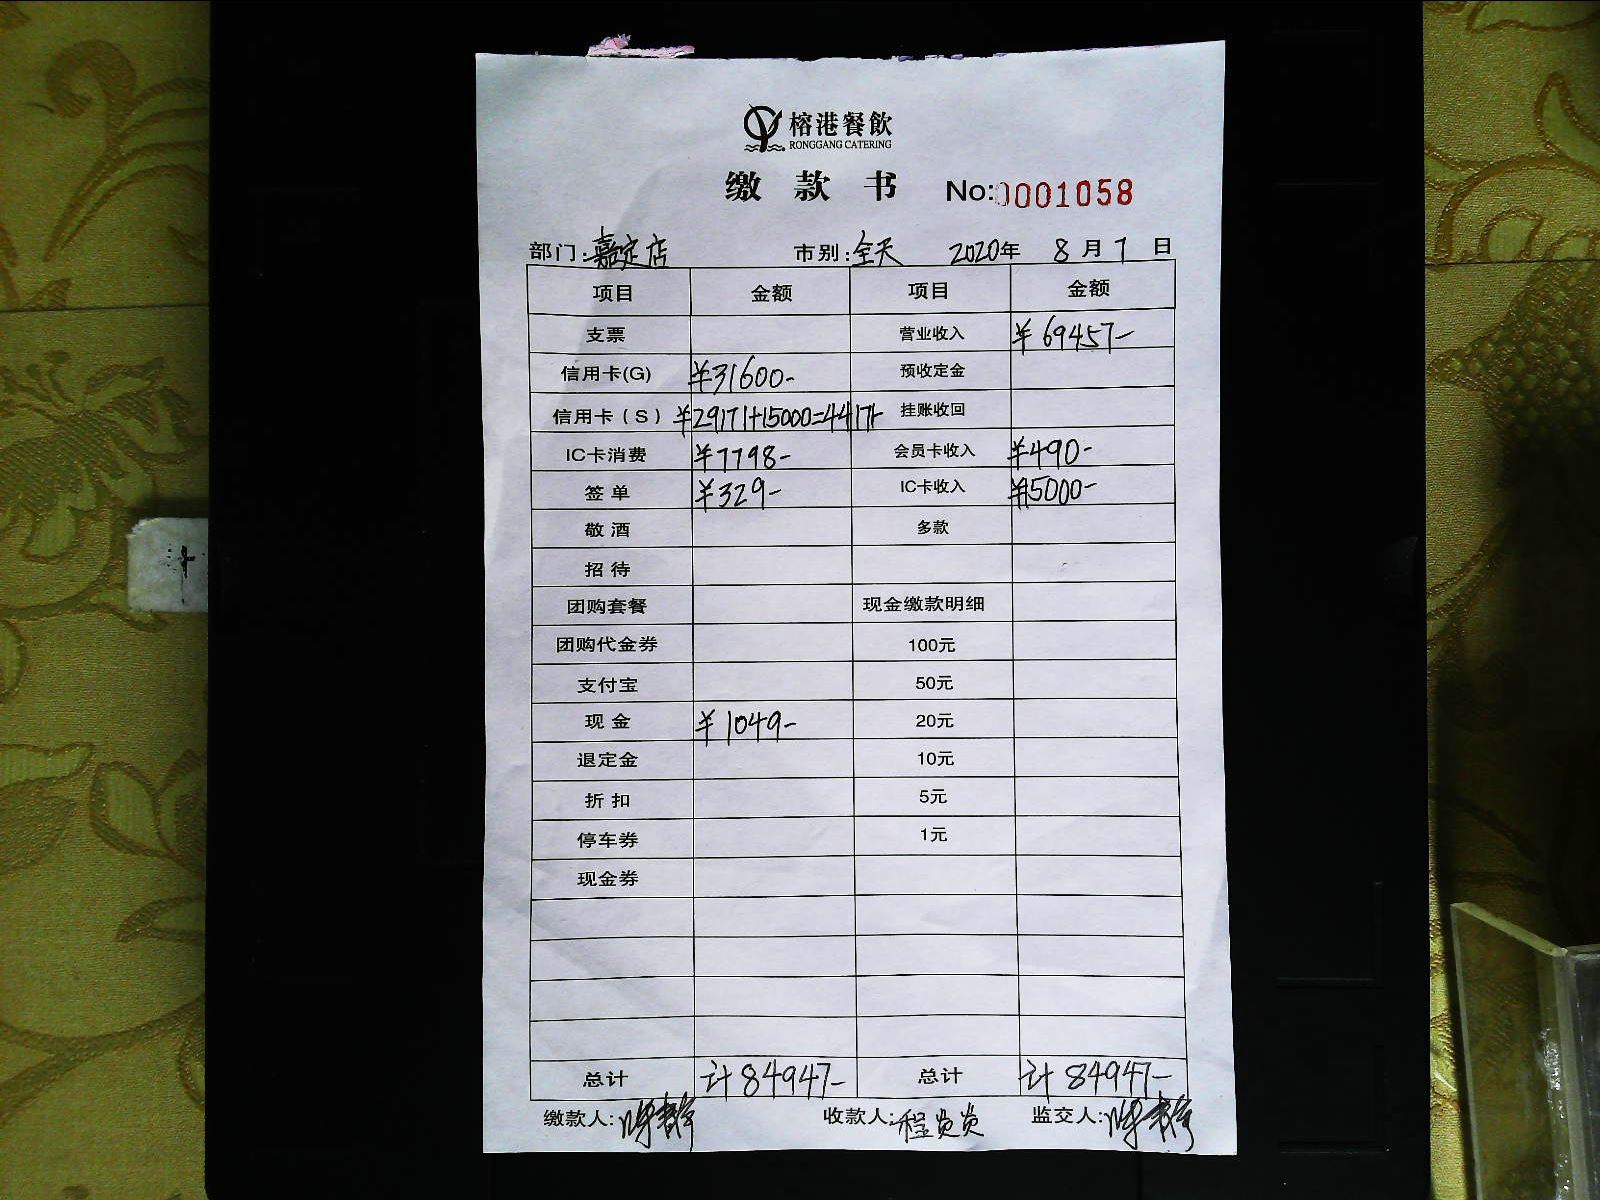 榕港餐飲
RONGGANG CATERING
缴款书 No:0001058
部门:嘉定店 市别:全天 2020年 8月7日
项目 金额 项目 金额
支票 营业收入 ¥69457-
信用卡(G) ¥31600- 预收定金
信用卡(S) ¥29171+15000=44171- 挂账收回
IC卡消费 ¥7798- 会员卡收入 ¥490-
签单 ¥329- IC卡收入 ¥15000-
敬酒 多款
招待
团购套餐 现金缴款明细
团购代金券 100元
支付宝 50元
现金 ¥1049- 20元
退定金 10元
折扣 5元
停车券 1元
现金券
总计 计84947- 总计 计84947-
缴款人: 收款人:程 监交人: